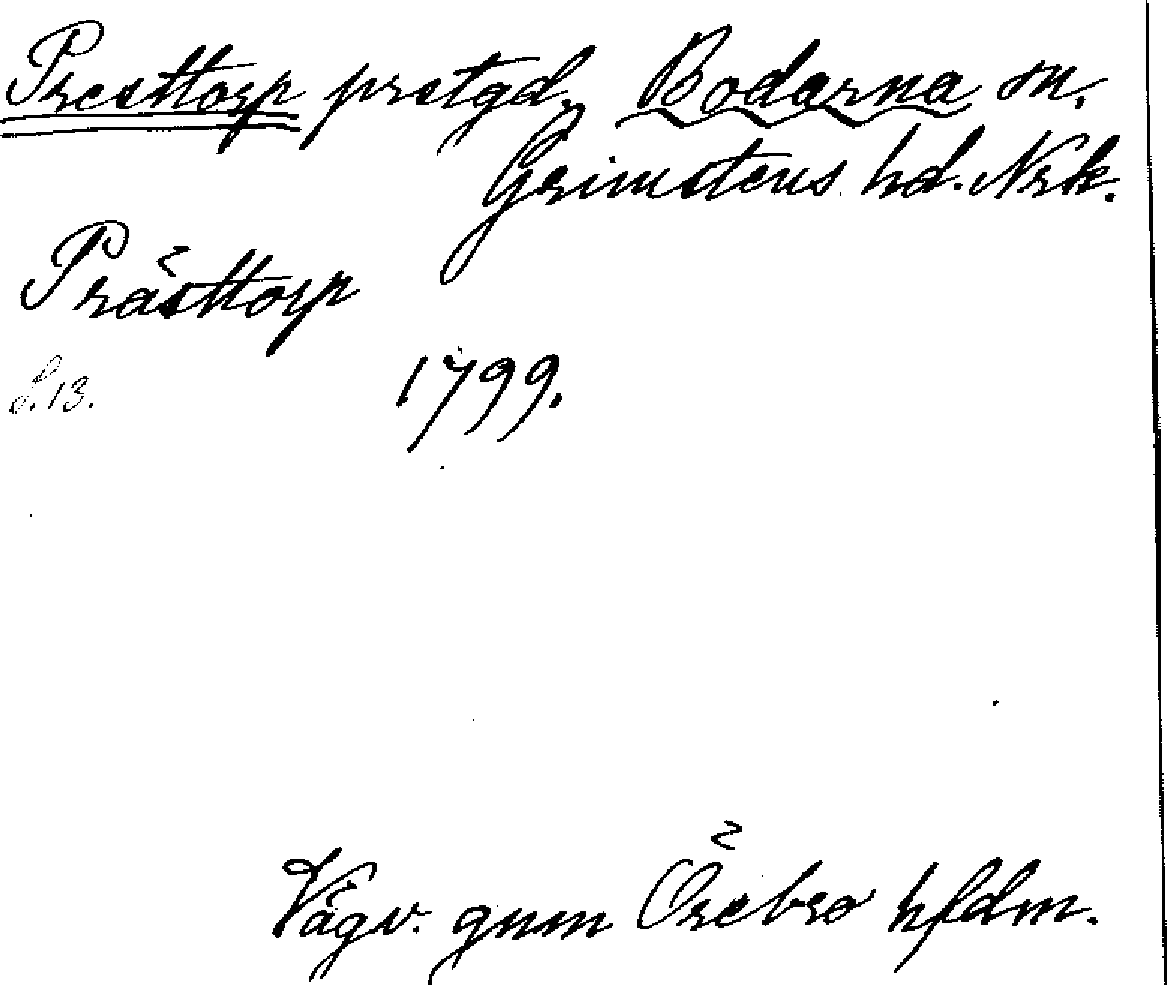 Presttorp prstgd, Bodarna sn.
Grimstens hd. Nrk.
Prästtorp
S. 13.
1799.
Vägv. gnm Örebro hfdm.